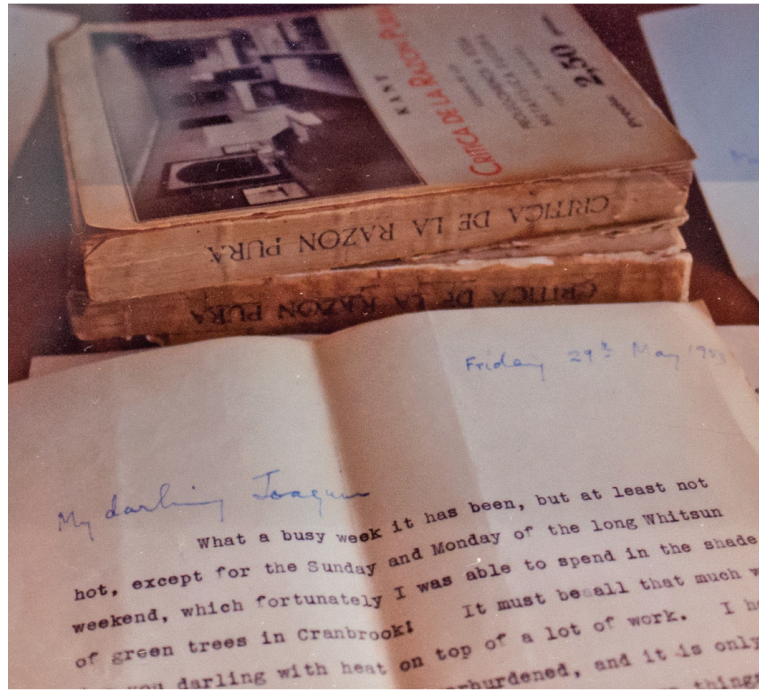 KANT
CRITICA DE LA RAZON PURA
METAFISICA FUTURA
Precio: 2,50
CRITICA DE LA RAZON PURA
CRITICA DE LA RAZON PURA
Friday 29th May 1953
My darling Joaquin
What a busy week it has been, but at least not
hot, except for the Sunday and Monday of the long Whitsun
weekend, which fortunately I was able to spend in the shade
of green trees in Cranbrook! It must be all that much
you darling with heat on top of a lot of work. I
and it is only
things